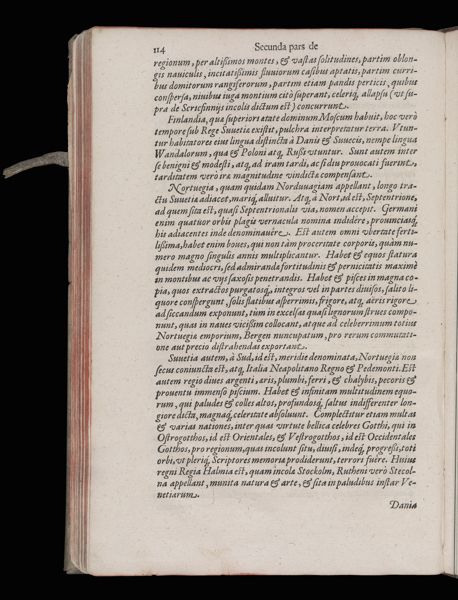 114 Secunda pars de
regionum, per altißimos montes, & vastas solitudines, partim oblon-
gis nauiculis, incitatißimis fluuiorum casibus aptatis, partim curri-
bus domitorum rangiferorum, partim etiam pandis perticis, quibus
conspersa, niuibus iuga montium citò superant, celeriq, allapsu (vt su-
pra de Scricfinnijs incolis dictum est) concurrunt.
Finlandia, qua superiori ætate dominum Moscum habuit, hoc verò
tempore sub Rege Suuetiæ existit, pulchra interpretatur terra. Vtun-
tur habitatores eius lingua distincta à Danis & Suuecis, nempe lingua
Wandalorum, qua & Poloni atq, Rußi vtuntur. Sunt autem inter
se benigni & modesti, atq, ad iram tardi, ac si diu prouocati fuerint,
tarditatem verò iræ magnitudine vindictæ compensant.
Nortuegia, quam quidam Norduuagiam appellant, longo tra-
ctu Suuetiæ adiacet, mariq, alluitur. Atq, à Nort, id est, Septentrione,
ad quem sita est, quasi Septentrionalis via, nomen accepit. Germani
enim quatuor orbis plagis vernacula nomina indidére, prouinciasq,
his adiacentes inde denominauére. Est autem omni vbertate ferti-
lißima, habet enim boues, qui non tàm proceritate corporis, quàm nu-
mero magno singulis annis multiplicantur. Habet & equos statura
quidem mediocri, sed admirandæ fortitudinis & pernicitatis maximè
in montibus ac vijs saxosis penetrandis. Habet & pisces in magna co-
pia, quos extractos purgatosq, integros vel in partes diuisos, salito li-
quore conspergunt, solis flatibus asperrimis, frigore, atq, aëris rigore
ad siccandum exponunt, tùm in excelsas quasi lignorum strues compo-
nunt, quas in naues vicißim collocant, atque ad celeberrimum totius
Nortuegiæ emporium, Bergen nuncupatum, pro rerum commutati-
one aut precio distrahendas exportant.
Suuetia autem, à Sud, id est, meridie denominata, Nortuegiæ non
secus coniuncta est, atq, Italia Neapolitano Regno & Pedemonti. Est
autem regio diues argenti, æris, plumbi, ferri, & chalybis, pecoris &
prouentu immenso piscium. Habet & infinitam multitudinem equo-
rum, qui paludes & colles altos, profundosq, saltus indifferenter lon-
giore dicta, magnaq, celeritate absoluunt. Complectitur etiam multas
& varias nationes, inter quas virtute bellica celebres Gotthi, qui in
Ostrogotthos, id est Orientales, & Vestrogotthos, id est Occidentales
Gotthos, pro regionum, quas incolunt situ, diuisi, indeq, progreßi, toti
orbi, vt pleriq, Scriptores memoriæ prodiderunt, terrori fuére. Huius
regni Regia Halmia est, quam incolæ Stockolm, Rutheni verò Stecol-
na appellant, munita natura & arte, & sita in paludibus instar Ve-
netiarum.
Dania